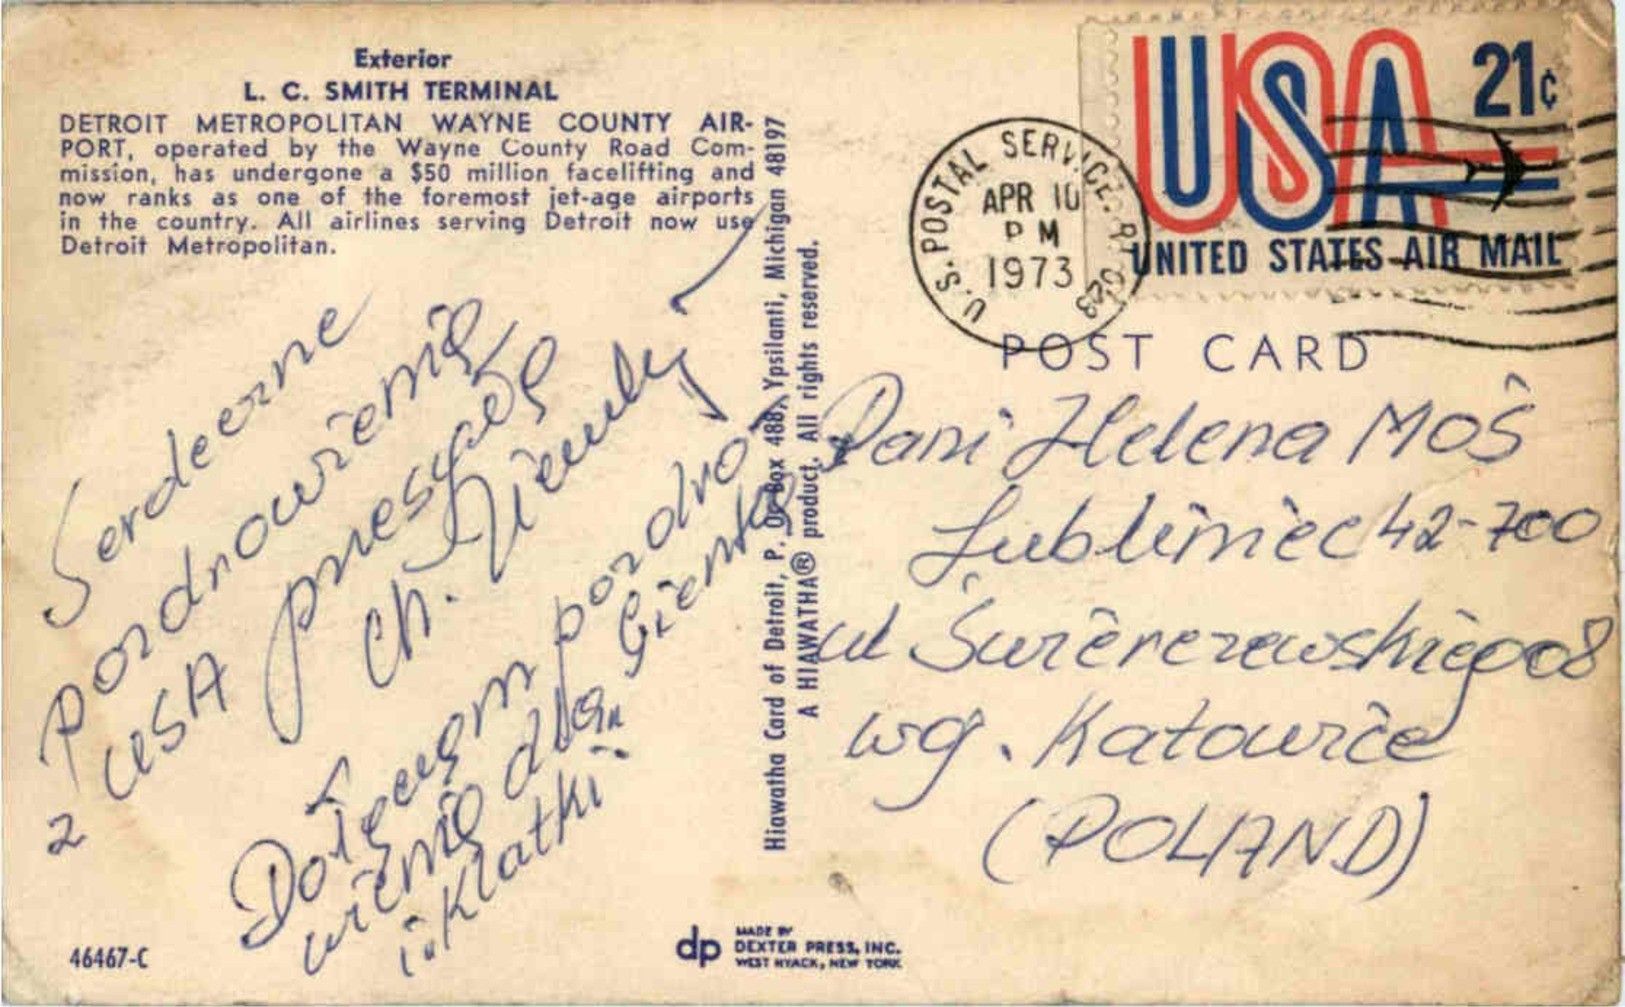 Exterior
L. C. SMITH TERMINAL
DETROIT METROPOLITAN WAYNE COUNTY AIR-
PORT, operated by the Wayne County Road Com-
mission, has undergone a $50 million facelifting and
now ranks as one of the foremost jet-age airports
in the country. All airlines serving Detroit now use
Detroit Metropolitan.
Serdeczne
pozdrowienia
z USA przesyła
Ch.
Dołączam pozdro-
wienia dla Gienka
i Klatki
46467-C
Hiawatha Card of Detroit, P. O. Box 488, Ypsilanti, Michigan 48197
A HIAWATHA® product. All rights reserved.
dp
MADE BY
DEXTER PRESS, INC.
WEST NYACK, NEW YORK
U.S. POSTAL SERVICE.
APR 10
PM
1973
USA 21c
UNITED STATES AIR MAIL
POST CARD
Pani Helena Moś
Lubliniec 42-700
ul Świerczewskiego 8
wg. Katowice
(POLAND)